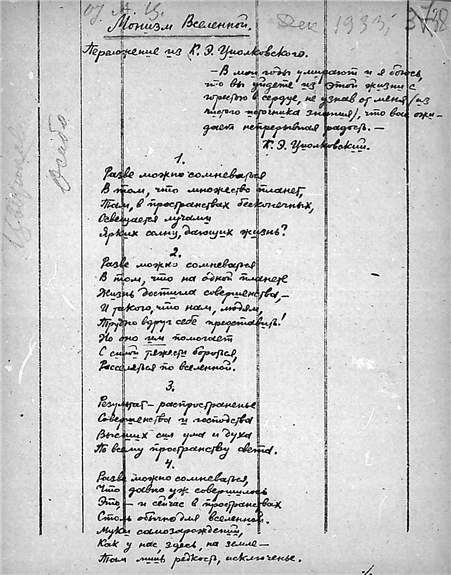 Монизм Вселенной.
Дек 1933,
Переложение из К. Э. Циолковского.
— В мои годы умирают и я боюсь,
что вы уйдете из этой жизни с
горестью в сердце, не узнав от меня (из
чистого источника знания), что вас ожи-
дает непрерывная радость. —
К. Э. Циолковский.
Особо
1.
Разве можно сомневаться
В том, что множество планет,
Там, в пространствах бесконечных,
Освещается лучами
Ярких солнц, дающих жизнь?
2.
Разве можно сомневаться
В том, что на одной планете
Жизнь достигла совершенства —
И такого, что нам, людям,
Трудно вдруг себе представить!
Но оно им помогает
С силой тяжести бороться,
Расселяться по вселенной.
3.
Результат — распространенье
Совершенства и господства
Высших сил ума и духа
По всему пространству света.
4.
Разве можно сомневаться,
Что давно уж совершилось
Это — и сейчас в пространствах
Столь обычно для вселенной.
Муки самозарождений,
Как у нас, здесь, на земле —
Там лишь редкость, исключенье.